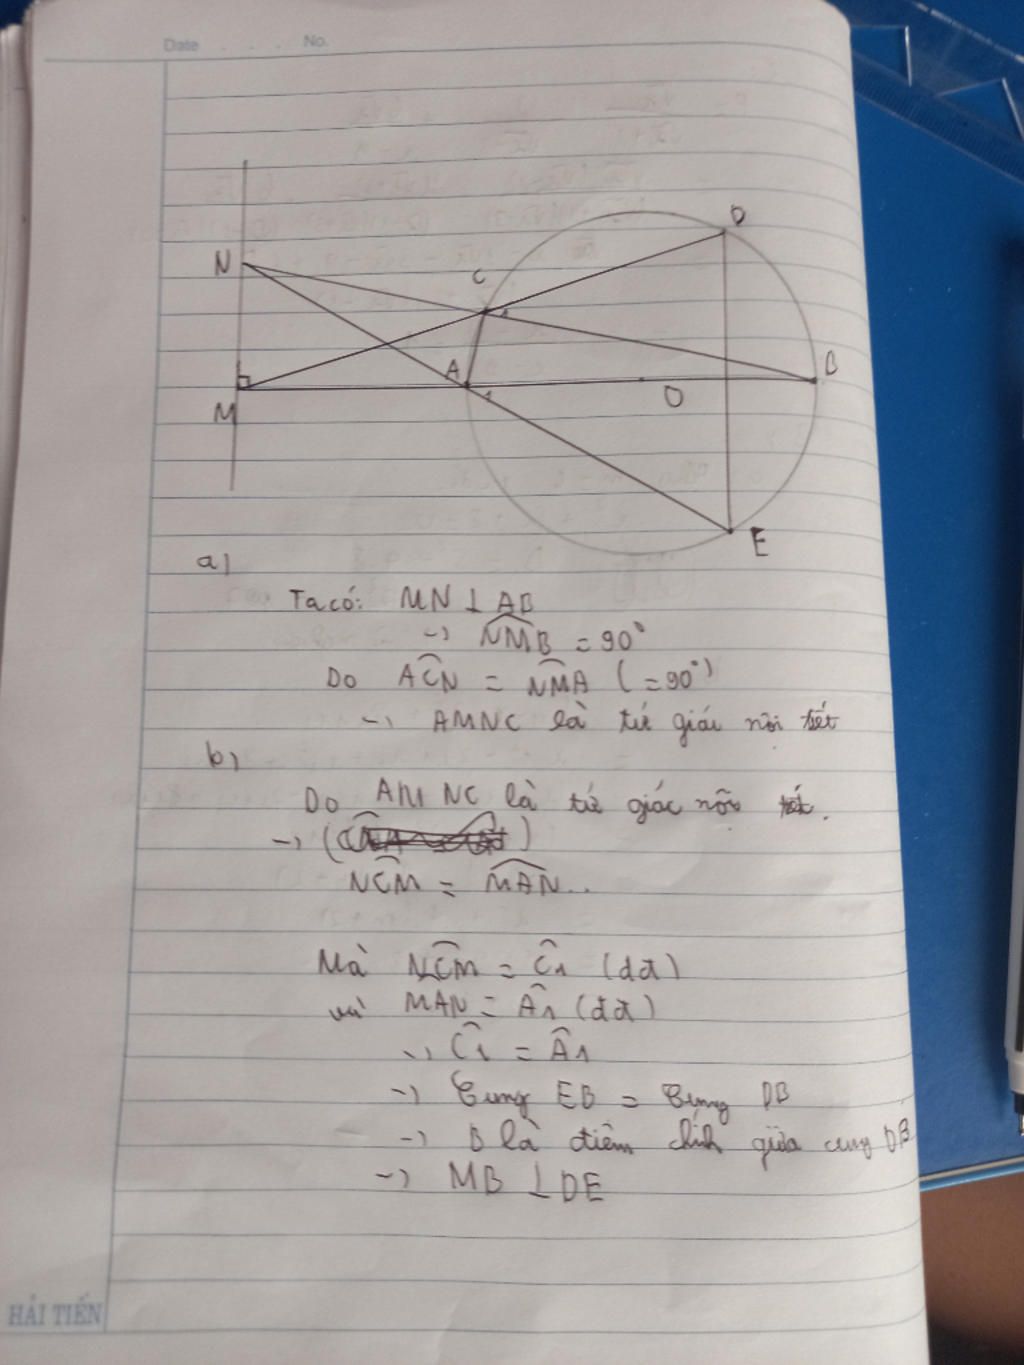 Date . . . No.
N
D
C
1
A
1
B
O
M
E
a)
Ta có: MN ⊥ AB
→ NMB = 90°
Do ACN = NMA (= 90°)
→ AMNC là tứ giác nội tiết
b)
Do AMNC là tứ giác nội
→ (
NCM = MAN..
Mà NCM = C1 (dđ)
và MAN = A1 (đđ)
→ C1 = A1
→ Cung EB = Cung DB
→ B là điểm chính giữa cung DB
→ MB ⊥ DE
HẢI TIẾN